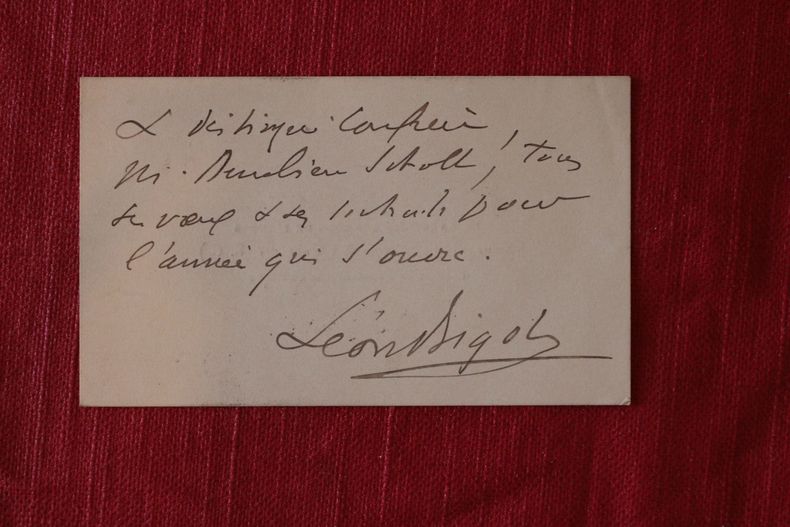 & distingué Confrère,
M. Aurélien Scholl, tous
ses vœux & ses souhaits pour
l'année qui s'ouvre.
Léon Bigot